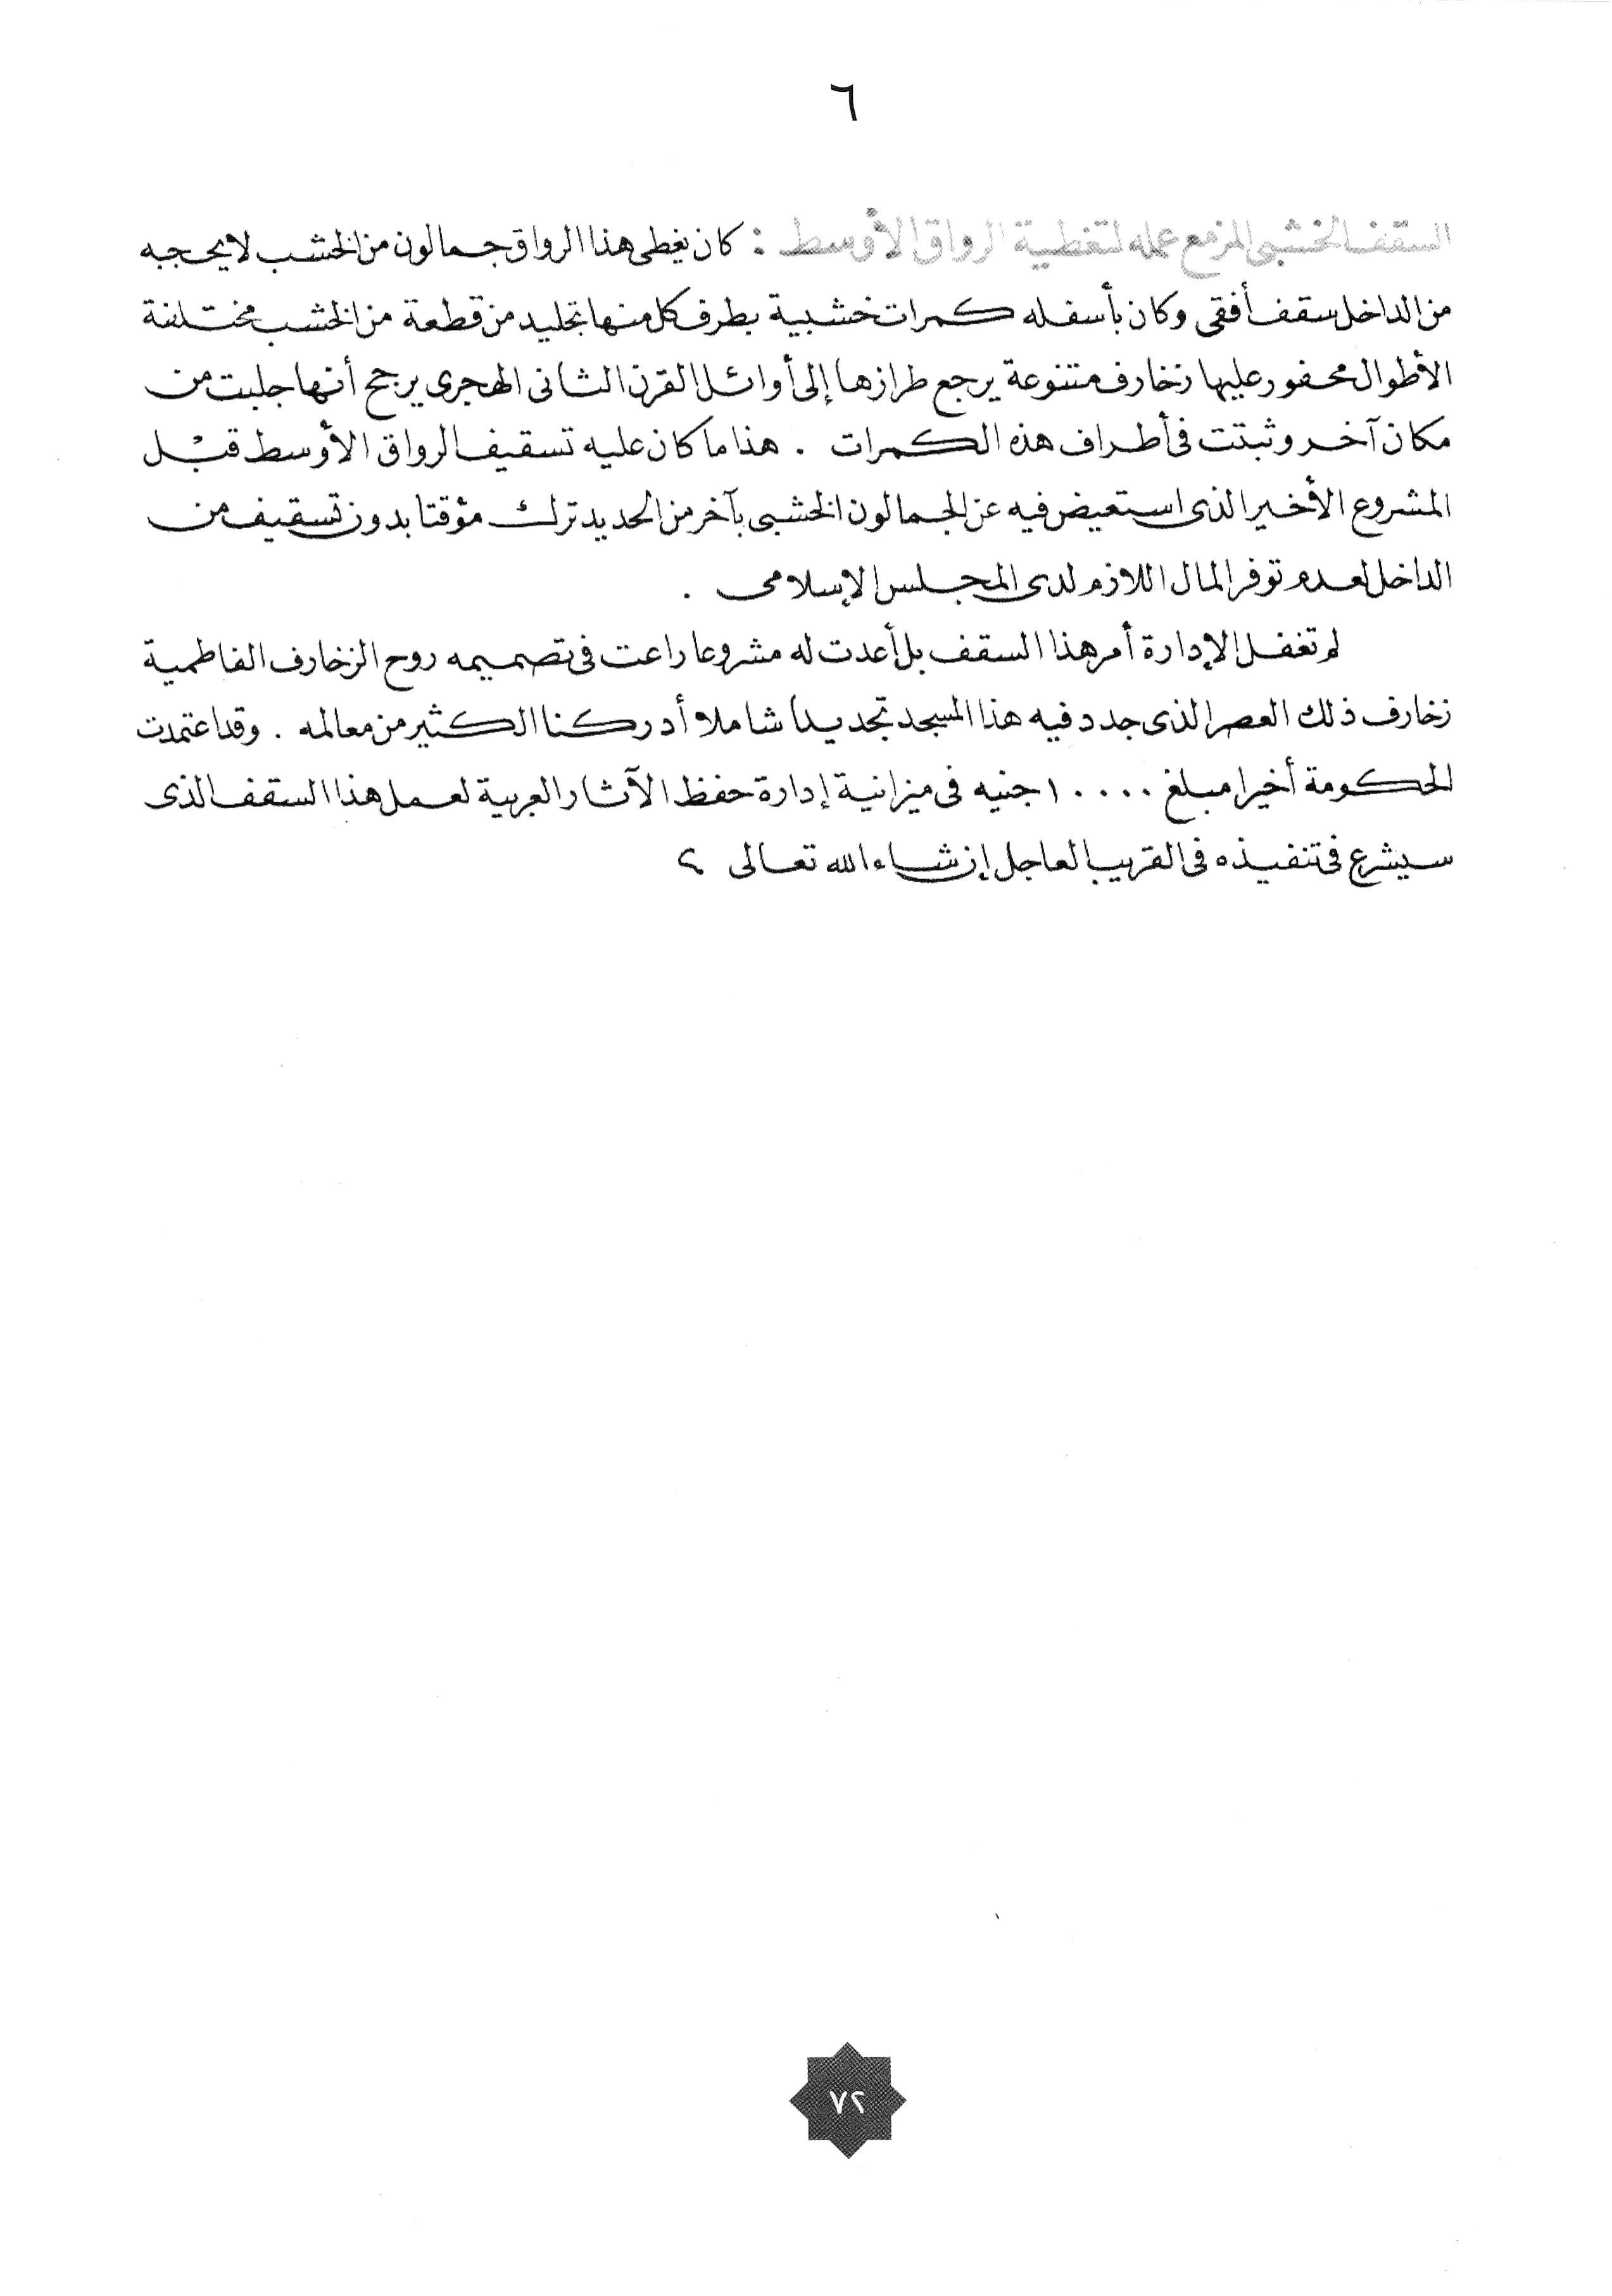 ٦
السقف الخشبى المزمع عمله لتغطية الرواق الأوسط : كان يغطى هذا الرواق جمالون من الخشب لا يحجبه
من الداخل سقف أفقى وكان بأسفله كمرات خشبية بطرف كل منها تجليد من قطعة من الخشب مختلفة
الأطوال محفور عليها زخارف متنوعة يرجع طرازها إلى أوائل القرن الثانى الهجرى يرجح أنها جلبت من
مكان آخر وثبتت فى أطراف هذه الكمرات . هذا ما كان عليه تسقيف الرواق الأوسط قبل
المشروع الأخير الذى استعيض فيه عن الجمالون الخشبى بآخر من الحديد ترك مؤقتا بدون تسقيف من
الداخل لعدم توفر المال اللازم لدى المجلس الإسلامى .
لم تغفل الإدارة أمر هذا السقف بل أعدت له مشروعا راعت فى تصميمه روح الزخارف الفاطمية
زخارف ذلك العصر الذى جدد فيه هذا المسجد تجديدا شاملا أدركنا الكثير من معالمه . وقد اعتمدت
الحكومة أخيرا مبلغ ١٠٠٠٠ جنيه فى ميزانية إدارة حفظ الآثار العربية لعمل هذا السقف الذى
سيشرع فى تنفيذه فى القريب العاجل إن شاء الله تعالى
٧٢